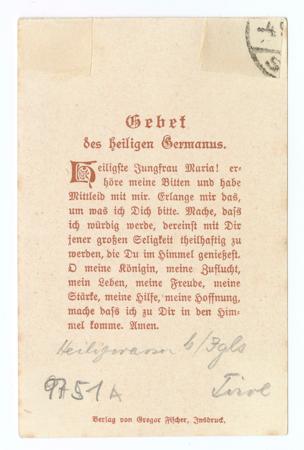 Gebet
des heiligen Germanus.
Heiligste Jungfrau Maria! er-
höre meine Bitten und habe
Mittleid mit mir. Erlange mir das,
um was ich Dich bitte. Mache, daß
ich würdig werde, dereinst mit Dir
jener großen Seligkeit theilhaftig zu
werden, die Du im Himmel genießest.
O meine Königin, meine Zuflucht,
mein Leben, meine Freude, meine
Stärke, meine Hilfe, meine Hoffnung,
mache daß ich zu Dir in den Him-
mel komme. Amen.
Heiligwasser b/Igls
9751A Tirol
Verlag von Gregor Fischer, Innsbruck.